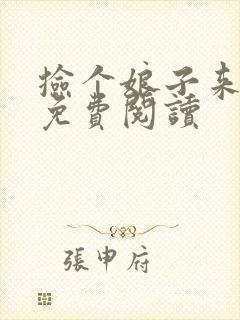 撿个娘子来
免費閱讀
張申府